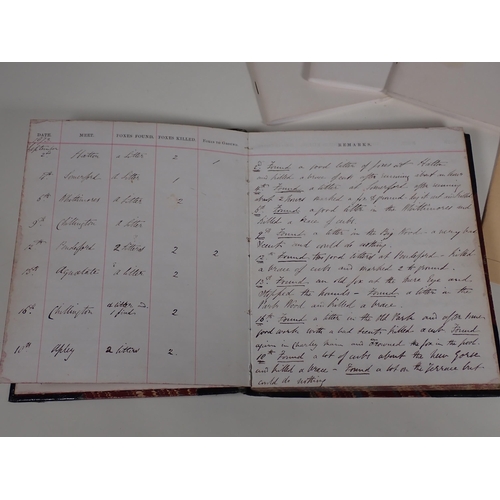 DATE. MEET. FOXES FOUND. FOXES KILLED. REMARKS.
September
2nd Hatton a litter 2 1
4th Somerford a litter 1
5th a litter 2
9th Chillington a litter
12th Pendeford 2 litters 2 2
13th Aqualate a litter 2
16th Chillington a litter and
1 fox 2
18th Apley 2 litters 2.
2nd Found a good litter of foxes at Hatton
and killed a brace of cubs after running about an hour
4th Found a litter at Somerford after running
about 2 hours marked a fox to ground
5th Found a good litter in the
and killed a brace of cubs
9th Found a litter in the Big Wood - a very bad
scent and could do nothing
12th Found two good litters at Pendeford - killed
a brace of cubs and marked 2 to ground.
13th Found an old fox at the Mere End and
stopped the hounds - Found a litter in the
Park Pool and killed a brace.
16th Found a litter in the Old Park and after some
good work with a bad scent killed a cub. Found
again in and drowned the fox in the pool.
18th Found a lot of cubs about the New Gorse
and killed a brace - Found a lot on the Terrace but
could do nothing